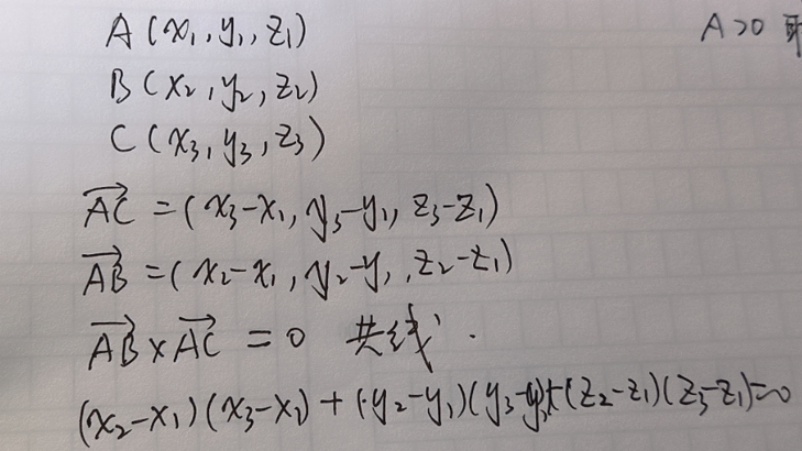 A(x₁,y₁,z₁)
A>0
B(x₂,y₂,z₂)
C(x₃,y₃,z₃)
→AC=(x₃-x₁,y₃-y₁,z₃-z₁)
→AB=(x₂-x₁,y₂-y₁,z₂-z₁)
→AB×→AC=0 共线.
(x₂-x₁)(x₃-x₁)+(y₂-y₁)(y₃-y₁)+(z₂-z₁)(z₃-z₁)=0